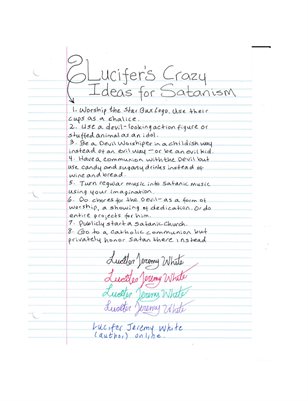 Lucifer's Crazy
Ideas for Satanism
1. Worship the Star Bux Logo. Use their
cups as a chalice.
2. Use a devil-looking action figure or
stuffed animal as an idol.
3. Be a Devil Worshiper in a childish way
instead of an evil way - or be an evil kid.
4. Have a communion with the Devil but
use candy and sugary drinks instead of
wine and bread.
5. Turn regular music into Satanic music
using your imagination
6. Do chores for the Devil- as a form of
worship, a showing of dedication. Or do
entire projects for him.
7. Publicly start a Satanic Church.
8. Go to a Catholic communion but
privately honor Satan there instead
Lucifer Jeremy White
Lucifer Jeremy White
Lucifer Jeremy White
Lucifer Jeremy White
Lucifer Jeremy White
(author) online.